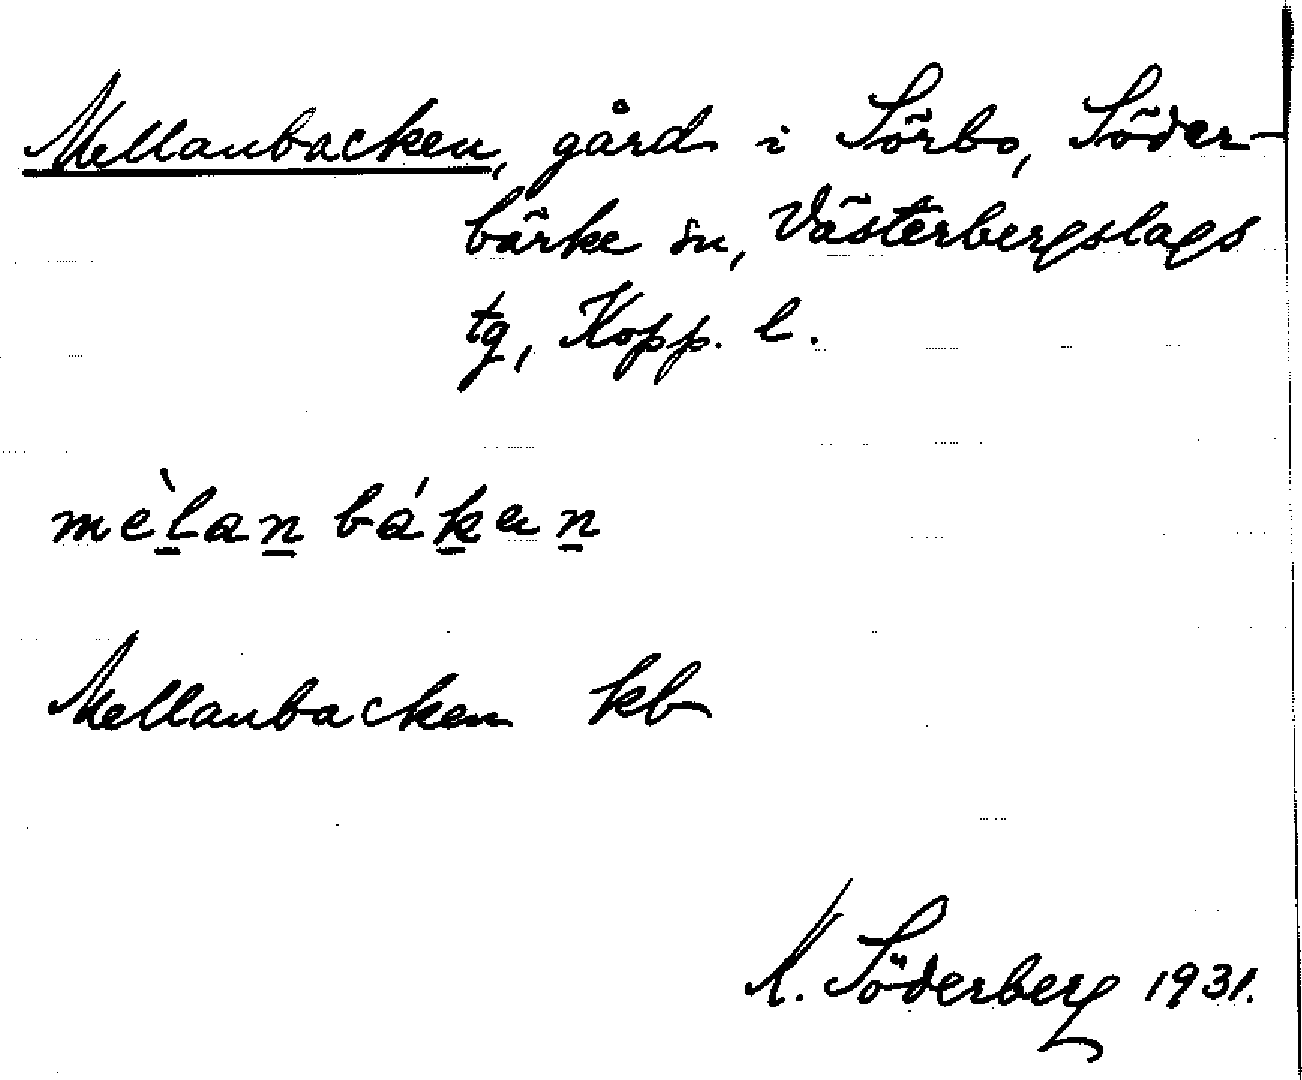 Mellanbacken, gård i Sörbo, Söder-
bärke sn, Västerbergslags
tg, Kopp. l.
mèlan bákan
Mellanbacken kb
K. Söderberg 1931.